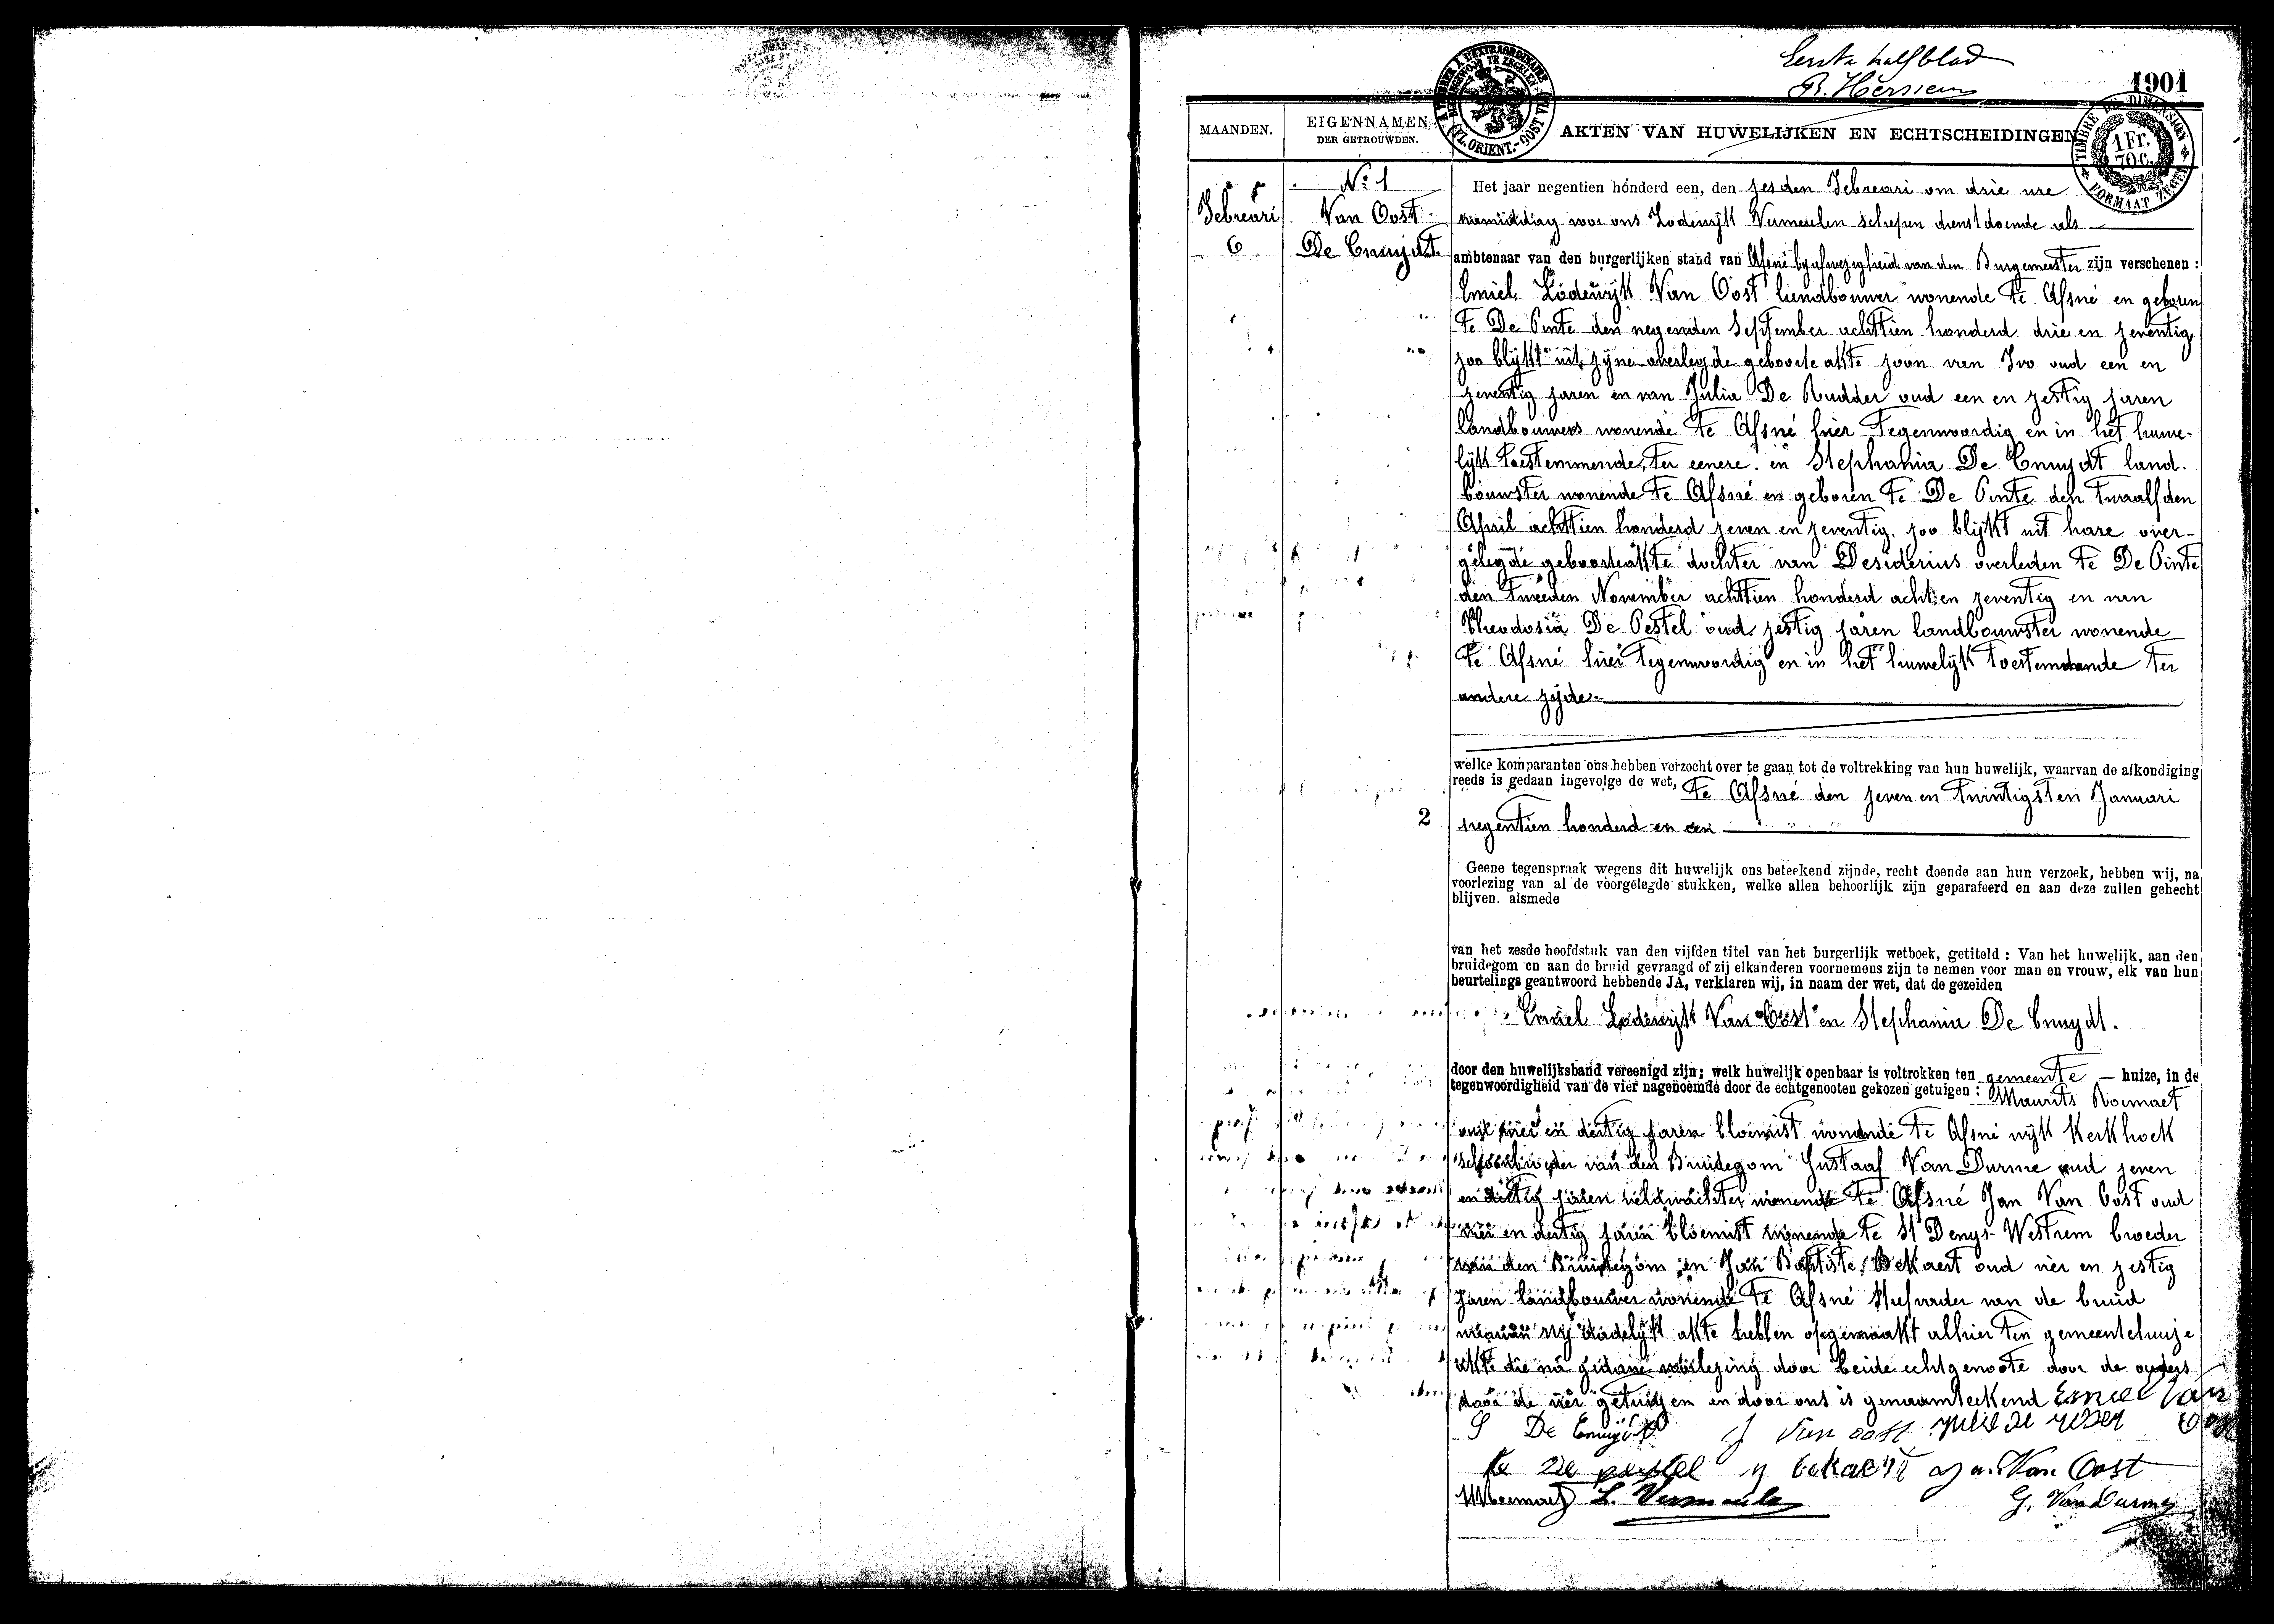 Eerste halfblad
1901
MAANDEN.
EIGENNAMEN
DER GETROUWDEN.
AKTEN VAN HUWELIJKEN EN ECHTSCHEIDINGEN
TIMBRE DE DIMENSION
1 Fr.
70 c.
FORMAAT ZEGEL
Februari
6
No 1
Van Oost
De Cnuydt
Het jaar negentien honderd een, den zesden Februari om drie ure
namiddag voor ons Lodewijk Vermeulen schepen dienstdoende als
ambtenaar van den burgerlijken stand van Afsné bij afwezigheid van den Burgemeester zijn verschenen :
Emiel Lodewijk Van Oost landbouwer wonende te Afsné en geboren
te De Pinte den negenden September achttien honderd drie en zeventig
zoo blijkt uit zijne overlegde geboorte akte zoon van Ivo oud een en
zeventig jaren en van Julia De Rudder oud een en zestig jaren
landbouwers wonende te Afsné hier tegenwoordig en in het huwe-
lijk toestemmende, ter eenere. en Stephania De Cnuydt land-
bouwster wonende te Afsné en geboren te De Pinte den twaalfden
April achttien honderd zeven en zeventig. zoo blijkt uit hare over-
gelegde geboorteakte dochter van Desiderius overleden te De Pinte
den tweeden November achttien honderd acht en zeventig en van
Theodosia De Pestel oud zestig jaren landbouwster wonende
te Afsné hier tegenwoordig en in het huwelijk toestemmende ter
andere zijde
welke komparanten ons hebben verzocht over te gaan tot de voltrekking van hun huwelijk, waarvan de afkondiging
reeds is gedaan ingevolge de wet, te Afsné den zeven en twintigsten Januari
2
negentien honderd en een
Geene tegenspraak wegens dit huwelijk ons beteekend zijnde, recht doende aan hun verzoek, hebben wij, na
voorlezing van al de voorgelegde stukken, welke allen behoorlijk zijn geparafeerd en aan deze zullen gehecht
blijven. alsmede
van het zesde hoofdstuk van den vijfden titel van het burgerlijk wetboek, getiteld : Van het huwelijk, aan den
bruidegom en aan de bruid gevraagd of zij elkanderen voornemens zijn te nemen voor man en vrouw, elk van hun
beurtelings geantwoord hebbende JA, verklaren wij, in naam der wet, dat de gezeiden
Emiel Lodewijk Van Oost en Stephania De Cnuydt.
door den huwelijksband vereenigd zijn; welk huwelijk openbaar is voltrokken ten gemeente — huize, in de
tegenwoordigheid van de vier nagenoemde door de echtgenooten gekozen getuigen : Maurits Roemaet
oud vier en dertig jaren bloemist wonende te Afsné wijk Kerkhoek
schoonbroeder van den Bruidegom Gustaaf Van Durme oud zeven
en dertig jaren veldwachter wonende te Afsné Jan Van Oost oud
vier en dertig jaren bloemist wonende te St Denys-Westrem broeder
van den Bruidegom en Jan Baptiste Bekaert oud vier en zestig
jaren landbouwer wonende te Afsné Stiefvader van de bruid
waarvan wij dadelijk akte hebben opgemaakt alhier ten gemeentehuize
akte die na gedane voorlezing door beide echtgenoote door de ouders
door de vier getuigen en door ons is genaamteekend Emiel Van
Oost
S De Cnuydt J Van oost
De pestel bekaert Van Oost
MRoemaet L. Vermeule G. Van Durme